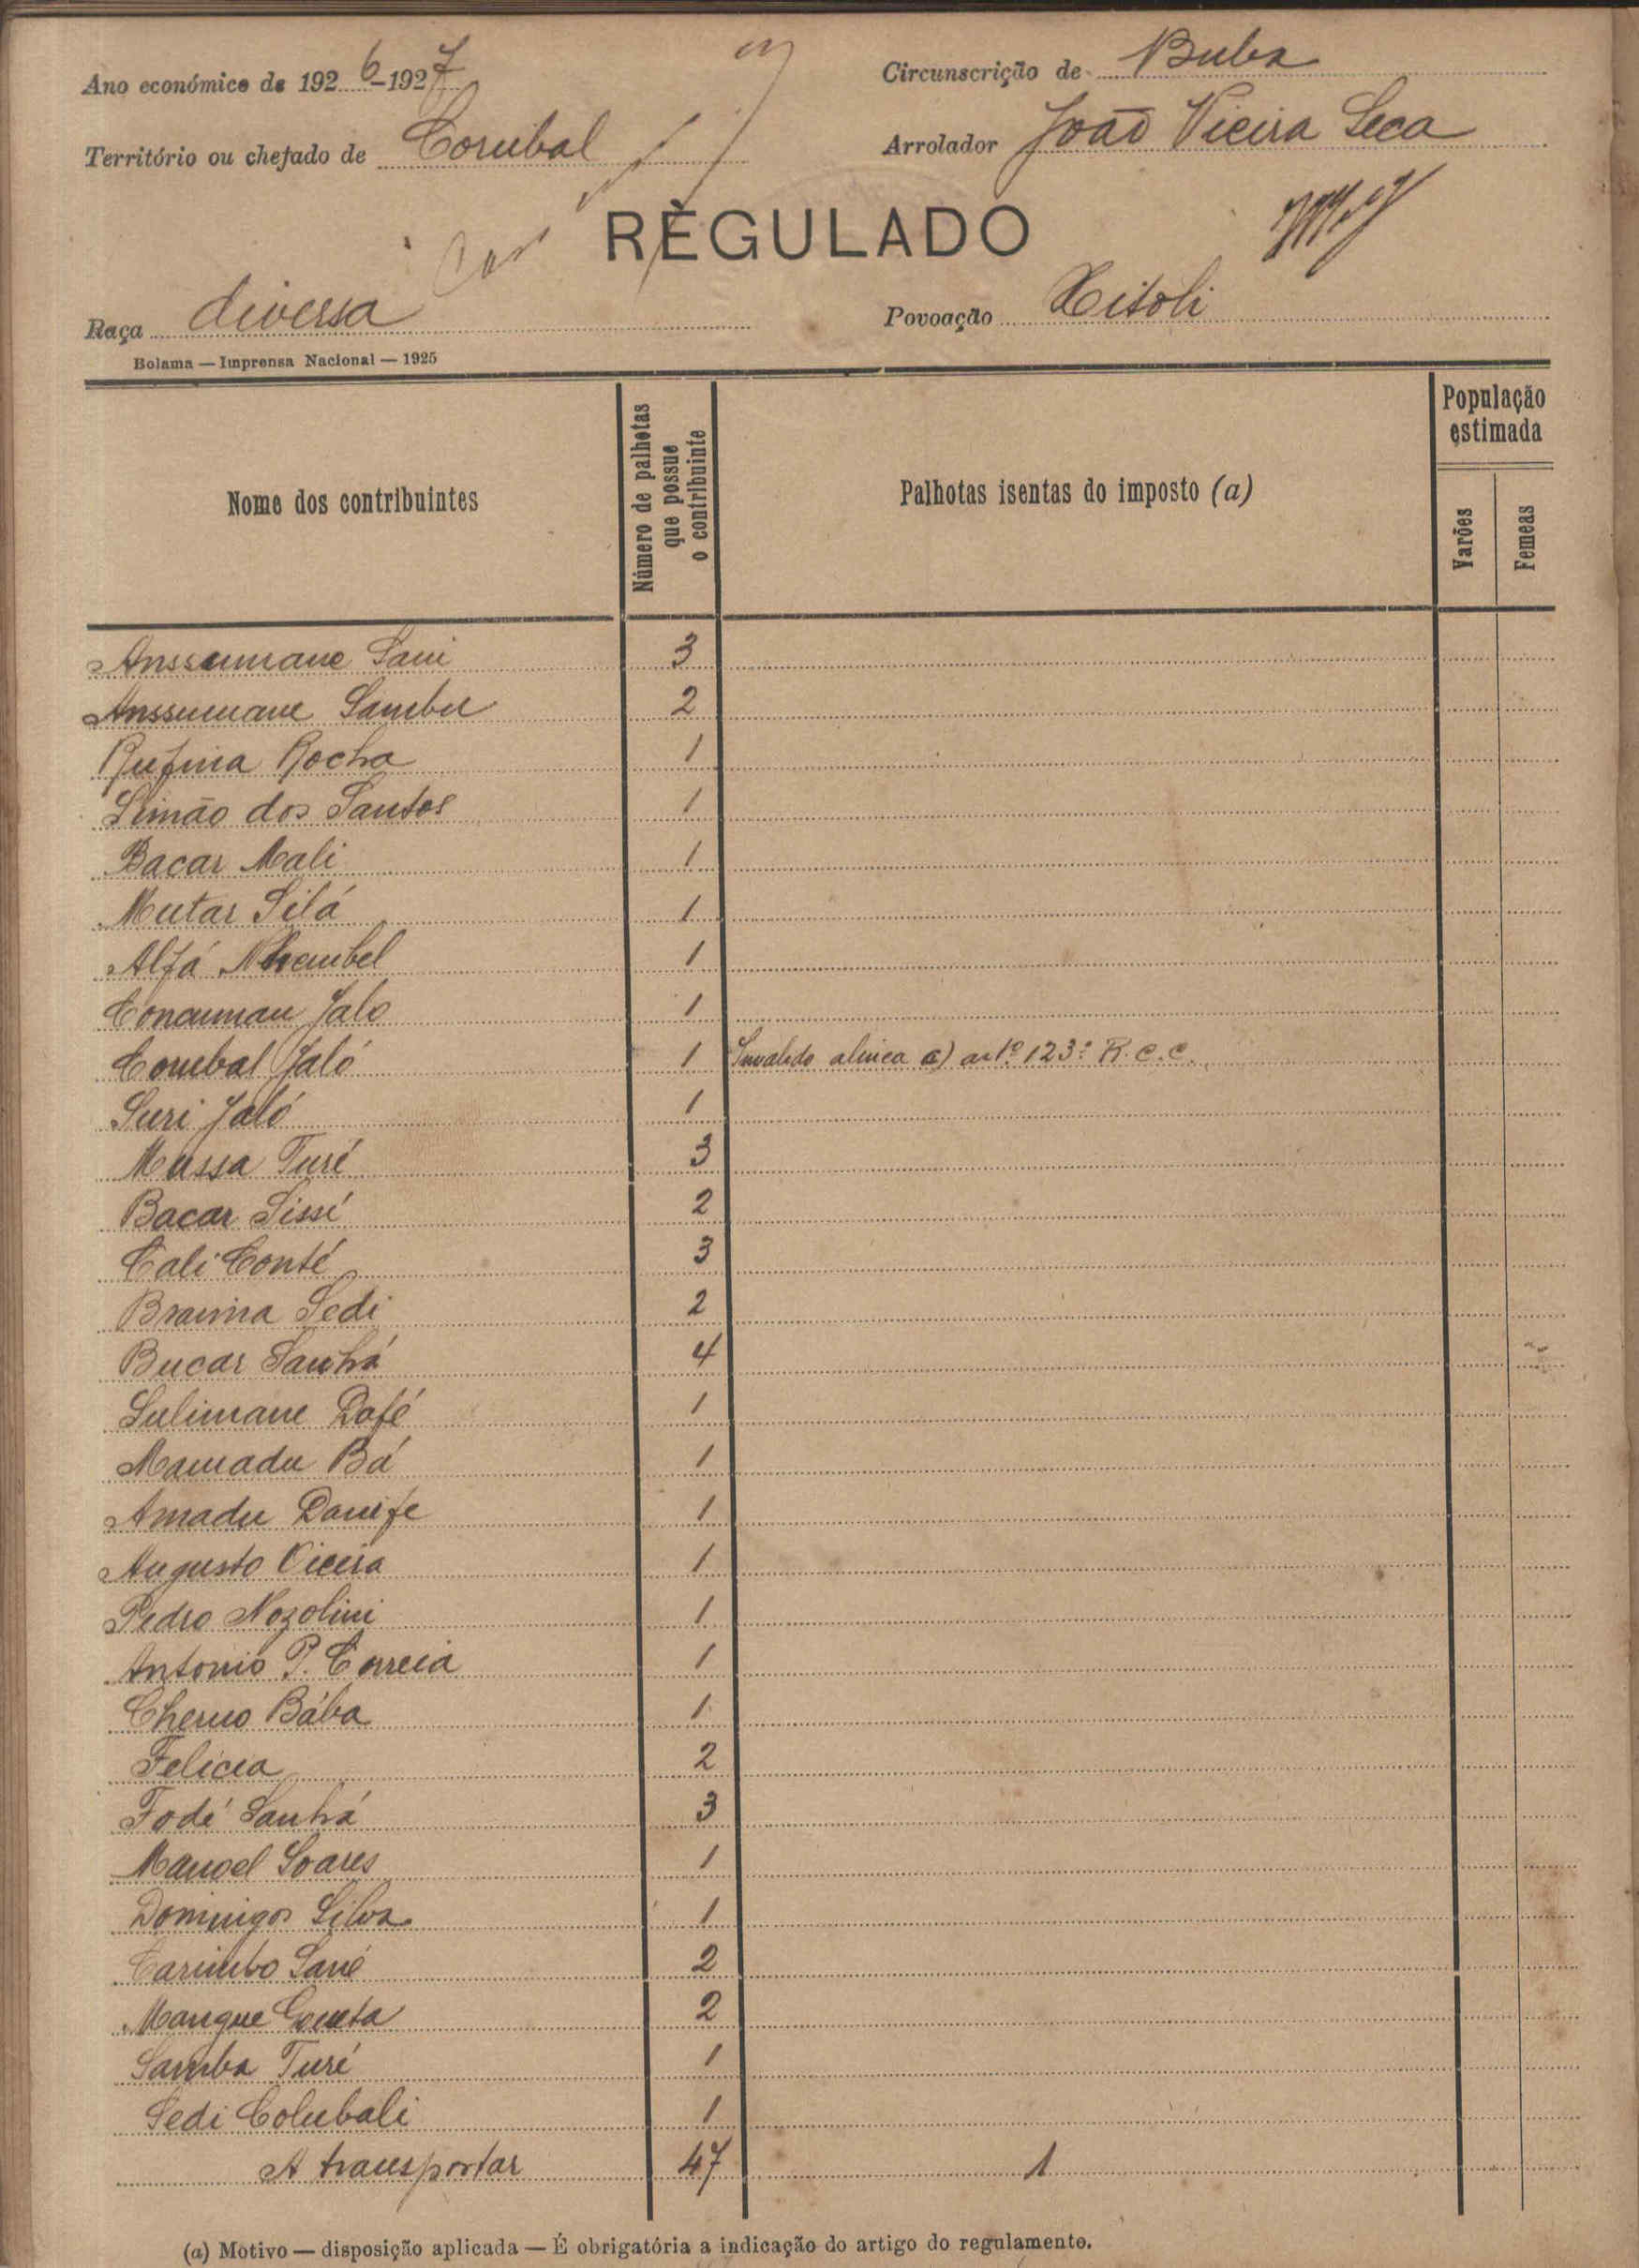 Ano económico de 1926-1927
Circunscrição de Buba
Território ou chefado de Corubal
Arrolador João Vieira Seca
REGULADO
Raça diversa
Povoação Xitoli
Bolama — Imprensa Nacional — 1925
Nome dos contribuintes
Número de palhotas que possue o contribuinte
Palhotas isentas do imposto (a)
População estimada
Varões
Femeas
Anssumane Sani 3
Anssumane Sambu 2
Rufina Rocha 1
Simão dos Santos 1
Bacar Mali 1
Mutar Silá 1
Alfá 1
Jalo 1
Corubal Jaló 1 Invalido alinea a) artº 123º R.C.C.
Suri Jaló 1
Mussa Turé 3
Bacar Sissé 2
Cali Conté 3
Braima Sedi 2
Bucar Sanhá 4
Sulimane Dafé 1
Mamadu Bá 1
Amadu 1
Augusto Vieira 1
Pedro Nozolini 1
Antonio P. Correia 1
Cherno Bába 1
Felicia 2
Fodé Sanhá 3
Manoel Soares 1
Domingos Silva 1
Carimbo Sané 2
Mangue 2
Samba Turé 1
Sedi Colubali 1
A transportar 47 1
(a) Motivo — disposição aplicada — É obrigatória a indicação do artigo do regulamento.